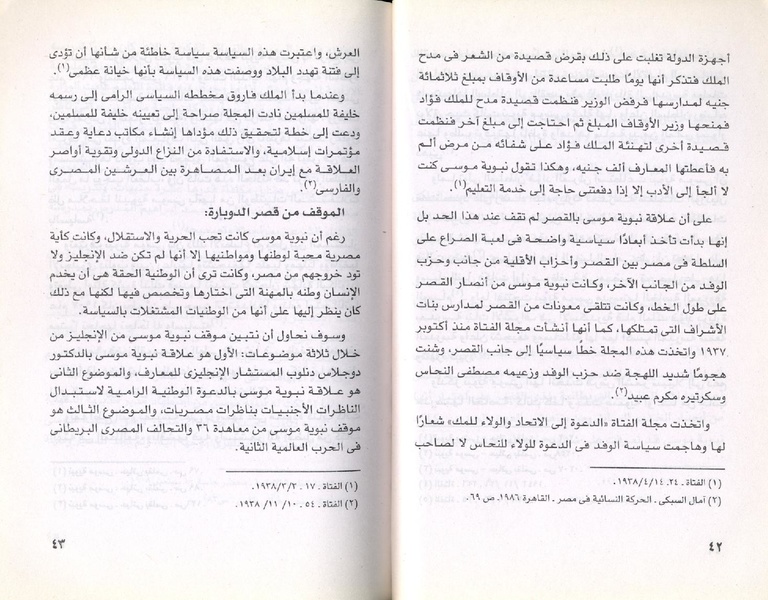 أجهزة الدولة تغلبت على ذلك بقرض قصيدة من الشعر فى مدح
الملك فتذكر أنها يومًا طلبت مساعدة من الأوقاف بمبلغ ثلاثمائة
جنيه لمدارسها فرفض الوزير فنظمت قصيدة مدح للملك فؤاد
فمنحها وزير الأوقاف المبلغ ثم احتاجت إلى مبلغ آخر فنظمت
قصيدة أخرى لتهنئة الملك فؤاد على شفائه من مرض ألم
به فأعطتها المعارف ألف جنيه، وهكذا تقول نبوية موسى كنت
لا ألجأ إلى الأدب إلا إذا دفعتنى حاجة إلى خدمة التعليم(١).
على أن علاقة نبوية موسى بالقصر لم تقف عند هذا الحد بل
إنها بدأت تأخذ أبعادًا سياسية واضحة فى لعبة الصراع على
السلطة فى مصر بين القصر وأحزاب الأقلية من جانب وحزب
الوفد من الجانب الآخر، وكانت نبوية موسى من أنصار القصر
على طول الخط، وكانت تتلقى معونات من القصر لمدارس بنات
الأشراف التى تمتلكها، كما أنها أنشأت مجلة الفتاة منذ أكتوبر
١٩٣٧ واتخذت هذه المجلة خطًا سياسيًا إلى جانب القصر، وشنت
هجومًا شديد اللهجة ضد حزب الوفد وزعيمه مصطفى النحاس
وسكرتيره مكرم عبيد(٢).
واتخذت مجلة الفتاة «الدعوة إلى الاتحاد والولاء للملك» شعارًا
لها وهاجمت سياسة الوفد فى الدعوة للولاء للنحاس لا لصاحب
(١) الفتاة ـ ٢٤ـ ١٩٣٨/٤/١٤.
(٢) آمال السبكى ـ الحركة النسائية فى مصر ـ القاهرة ١٩٨٦ـ ص ٦٩.
٤٢
العرش، واعتبرت هذه السياسة سياسة خاطئة من شأنها أن تؤدى
إلى فتنة تهدد البلاد ووصفت هذه السياسة بأنها خيانة عظمى(١).
وعندما بدأ الملك فاروق مخططه السياسى الرامى إلى رسمه
خليفة للمسلمين نادت المجلة صراحة إلى تعيينه خليفة للمسلمين،
ودعت إلى خطة لتحقيق ذلك مؤداها إنشاء مكاتب دعاية وعقد
مؤتمرات إسلامية، والاستفادة من النزاع الدولى وتقوية أواصر
العلاقة مع إيران بعد المصاهرة بين العرشين المصرى
والفارسى(٢).
الموقف من قصر الدوبارة:
رغم أن نبوية موسى كانت تحب الحرية والاستقلال، وكانت كأية
مصرية محبة لوطنها ومواطنيها إلا أنها لم تكن ضد الإنجليز ولا
تود خروجهم من مصر، وكانت ترى أن الوطنية الحقة هى أن يخدم
الإنسان وطنه بالمهنة التى اختارها وتخصص فيها لكنها مع ذلك
كان ينظر إليها على أنها من الوطنيات المشتغلات بالسياسة.
وسوف نحاول أن نتبين موقف نبوية موسى من الإنجليز من
خلال ثلاثة موضوعات: الأول هو علاقة نبوية موسى بالدكتور
دوجلاس دنلوب المستشار الإنجليزى للمعارف، والموضوع الثانى
هو علاقة نبوية موسى بالدعوة الوطنية الرامية لاستبدال
الناظرات الأجنبيات بناظرات مصريات، والموضوع الثالث هو
موقف نبوية موسى من معاهدة ٣٦ والتحالف المصرى البريطانى
فى الحرب العالمية الثانية.
(١) الفتاة ـ ١٧ ـ ١٩٣٨/٣/٣.
(٢) الفتاة ـ ٥٤ ـ ١٠/ ١١/ ١٩٣٨.
٤٣